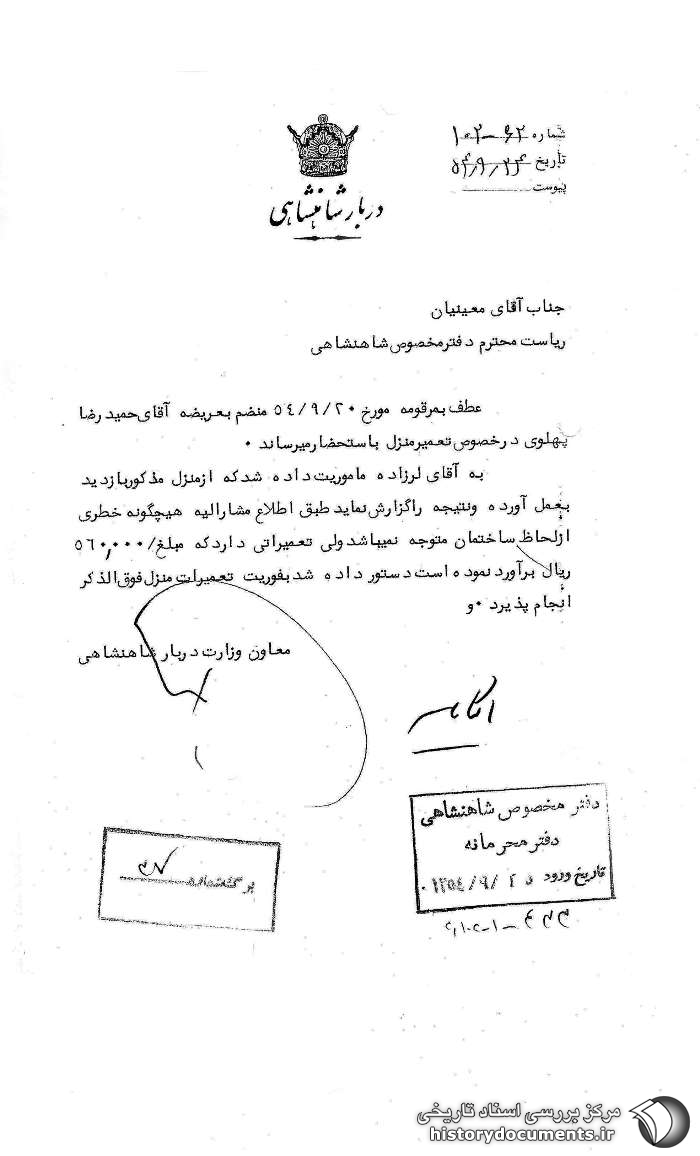 شماره ۶۲-۱۰۲
تاریخ ۵۴/۹/۲۴
پیوست
دربار شاهنشاهی
جناب آقای معینیان
ریاست محترم دفتر مخصوص شاهنشاهی
عطف بمرقومه مورخ ۵۴/۹/۲۰ منضم بعریضه آقای حمید رضا
پهلوی در خصوص تعمیر منزل باستحضار میرساند ۰
به آقای لرزاده ماموریت داده شد که از منزل مذکور بازدید
بعمل آورده ونتیجه را گزارش نماید طبق اطلاع مشارالیه هیچگونه خطری
از لحاظ ساختمان متوجه نمیباشد ولی تعمیراتی دارد که مبلغ /۵۶۰,۰۰۰
ریال برآورد نموده است دستور داده شد بفوریت تعمیرات منزل فوق الذکر
انجام پذیرد ۰و
معاون وزارت دربار شاهنشاهی
دفتر مخصوص شاهنشاهی
دفتر محرمانه
تاریخ ورود ۱۳۵۴/۹/۲۵
برگشماره
مرکز بررسی اسناد تاریخی
historydocuments.ir